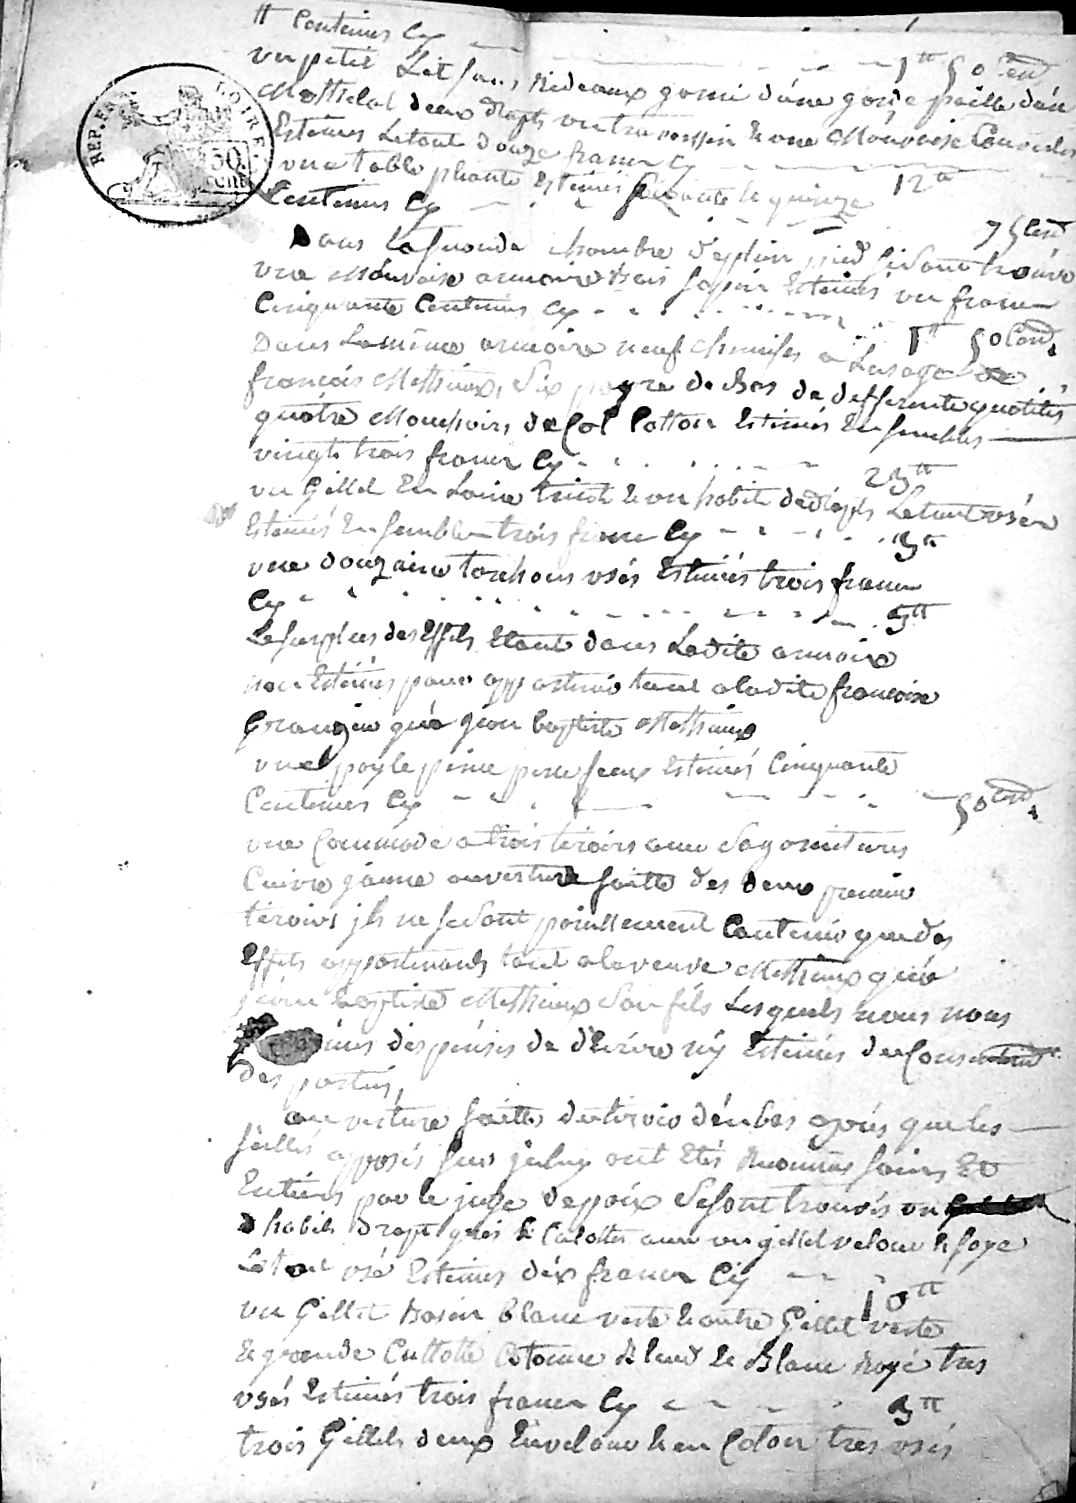 Centimes Cy 1tt 50 Cent
un petit Lit sans Rideaux garni d'une garde paille d'un
Mattelat deux draps un traversin & une Mauvaise Couverte
Estimés Le tout douze francs Cy 12tt
une table pliante Estimée Soixante & quinze
Centimes Cy 75 Cent
Dans La seconde chambre d'explin pied se sont trouvé
une Mauvaise armoire bois sapin Estimée un franc
Cinquante Centimes Cy 1tt 50 Cent
Dans La même armoire neuf chemises a Lusage de
françois Messiaux, Six payre de Bas de defferente qualités
quatre Mouchoirs de Col Cotton Estimés Ensembles
vingt trois francs Cy 23tt
un Gillet En Laine tricot & un habit de draps Le tout usée
Estimés Ensemble trois franc Cy 3tt
une douzaine torchons usés Estimés trois franc
Cy 3tt
Le surplus des Effets Etant dans Ladite armoire
non Estimés pour appartenir tant a ladite francoise
Grangie qu'a jean baptiste Messiaux
une poyle perse feux Estimés Cinquante
Centimes Cy 50 Cent
une Commode a trois tiroirs avec Sa garnitures
Cuivre jaune ouverture faitte des deux premier
tiroirs jls ne se sont pareillement Contenir que des
Effets appartenants tant a la veuve Messiaux qu'a
jean baptiste Messiaux Son fils Lesquels nous nous
dispensés de décrire ny Estimés du Consentement
des parties,
ouverture faitte du tiroir d'en bas après que les
scellés apposés sur jceluy ont Etés Reconnus sains Et
Entiers par le juge de paix Se sont trouvés un
d'habits drapt gris & Culottes avec un gillet velour & soye
Le tout usé Estimés dix francs Cy 10tt
un Gillet Basin Blanc veste & autre Gillet veste
& grande Cullotte Cotonne Bleud & Blanc Rayé tres
usés Estimés trois francs Cy 3tt
trois Gillets deux En velour & en Coton tres usés
REP. FRA.
LOIRE.
50
CENT